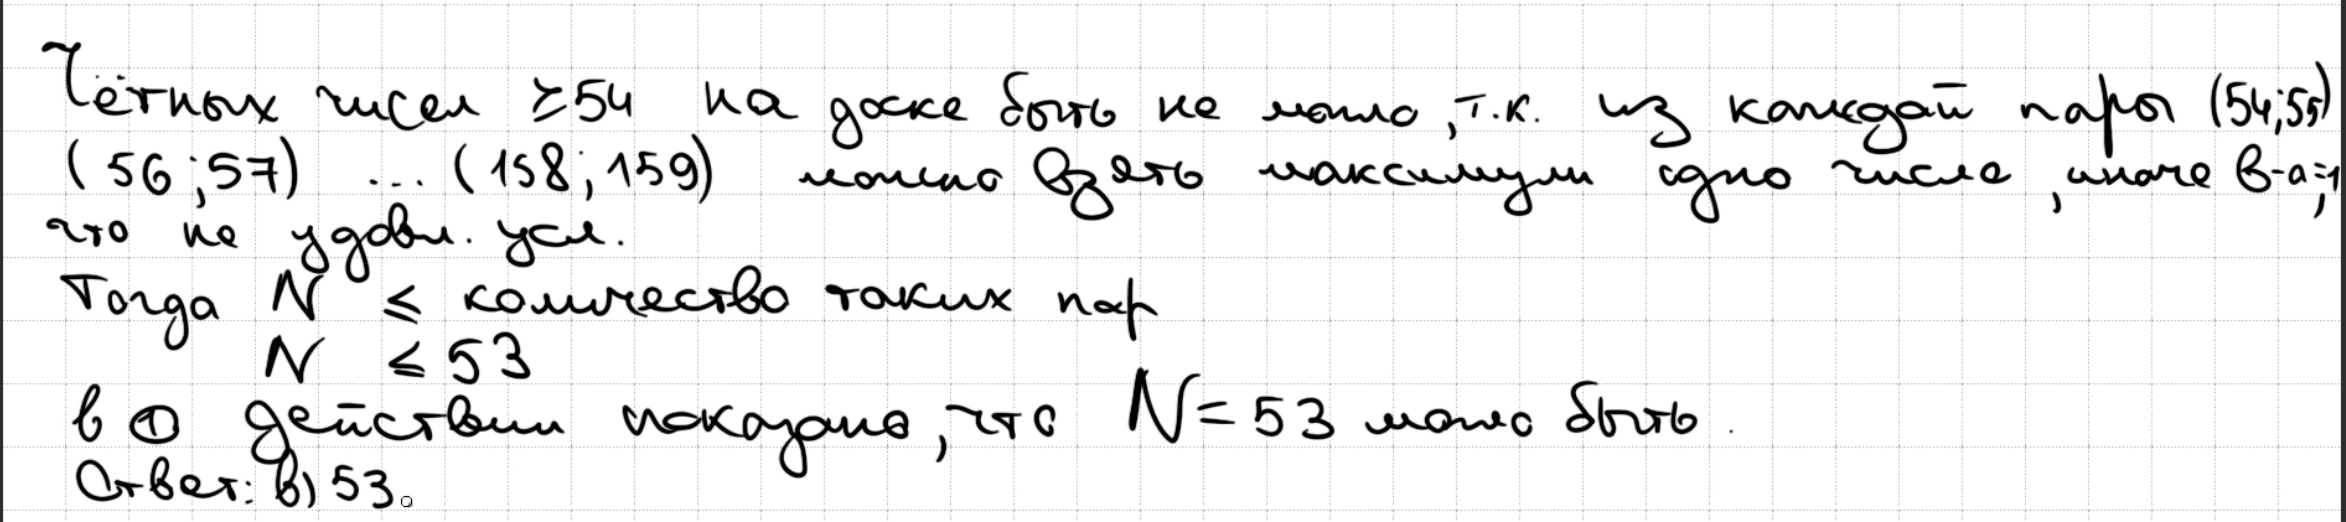 Чётных чисел ≥54 на доске быть не могло, т.к. из каждой пары (54;55)
(56;57) ... (158;159) можно взять максимум одно число, иначе b-a=1,
что не удовл. усл.
Тогда N ≤ количество таких пар
N ≤ 53
в ① действии показано, что N=53 могло быть.
Ответ: в) 53.